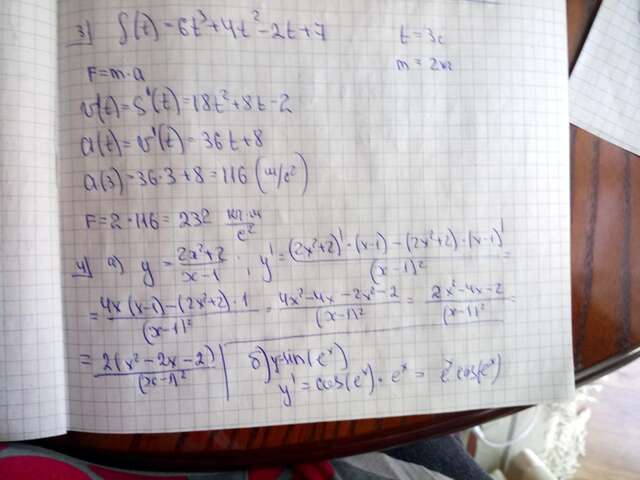 3) S(t) = 6t³ + 4t² - 2t + 7 t = 3c
F = m·a m = 2кг
v(t) = S'(t) = 18t² + 8t - 2
a(t) = v'(t) = 36t + 8
a(3) = 36·3 + 8 = 116 (м/с²)
F = 2·116 = 232 кг·м/с²
4) а) y = (2x²+2)/(x-1); y' = ((2x²+2)'·(x-1) - (2x²+2)·(x-1)')/(x-1)² =
= (4x(x-1) - (2x²+2)·1)/(x-1)² = (4x² - 4x - 2x² - 2)/(x-1)² = (2x² - 4x - 2)/(x-1)² =
= 2(x² - 2x - 2)/(x-1)² б) y sin(eˣ)
y' = cos(eˣ)·eˣ = eˣcos(eˣ)